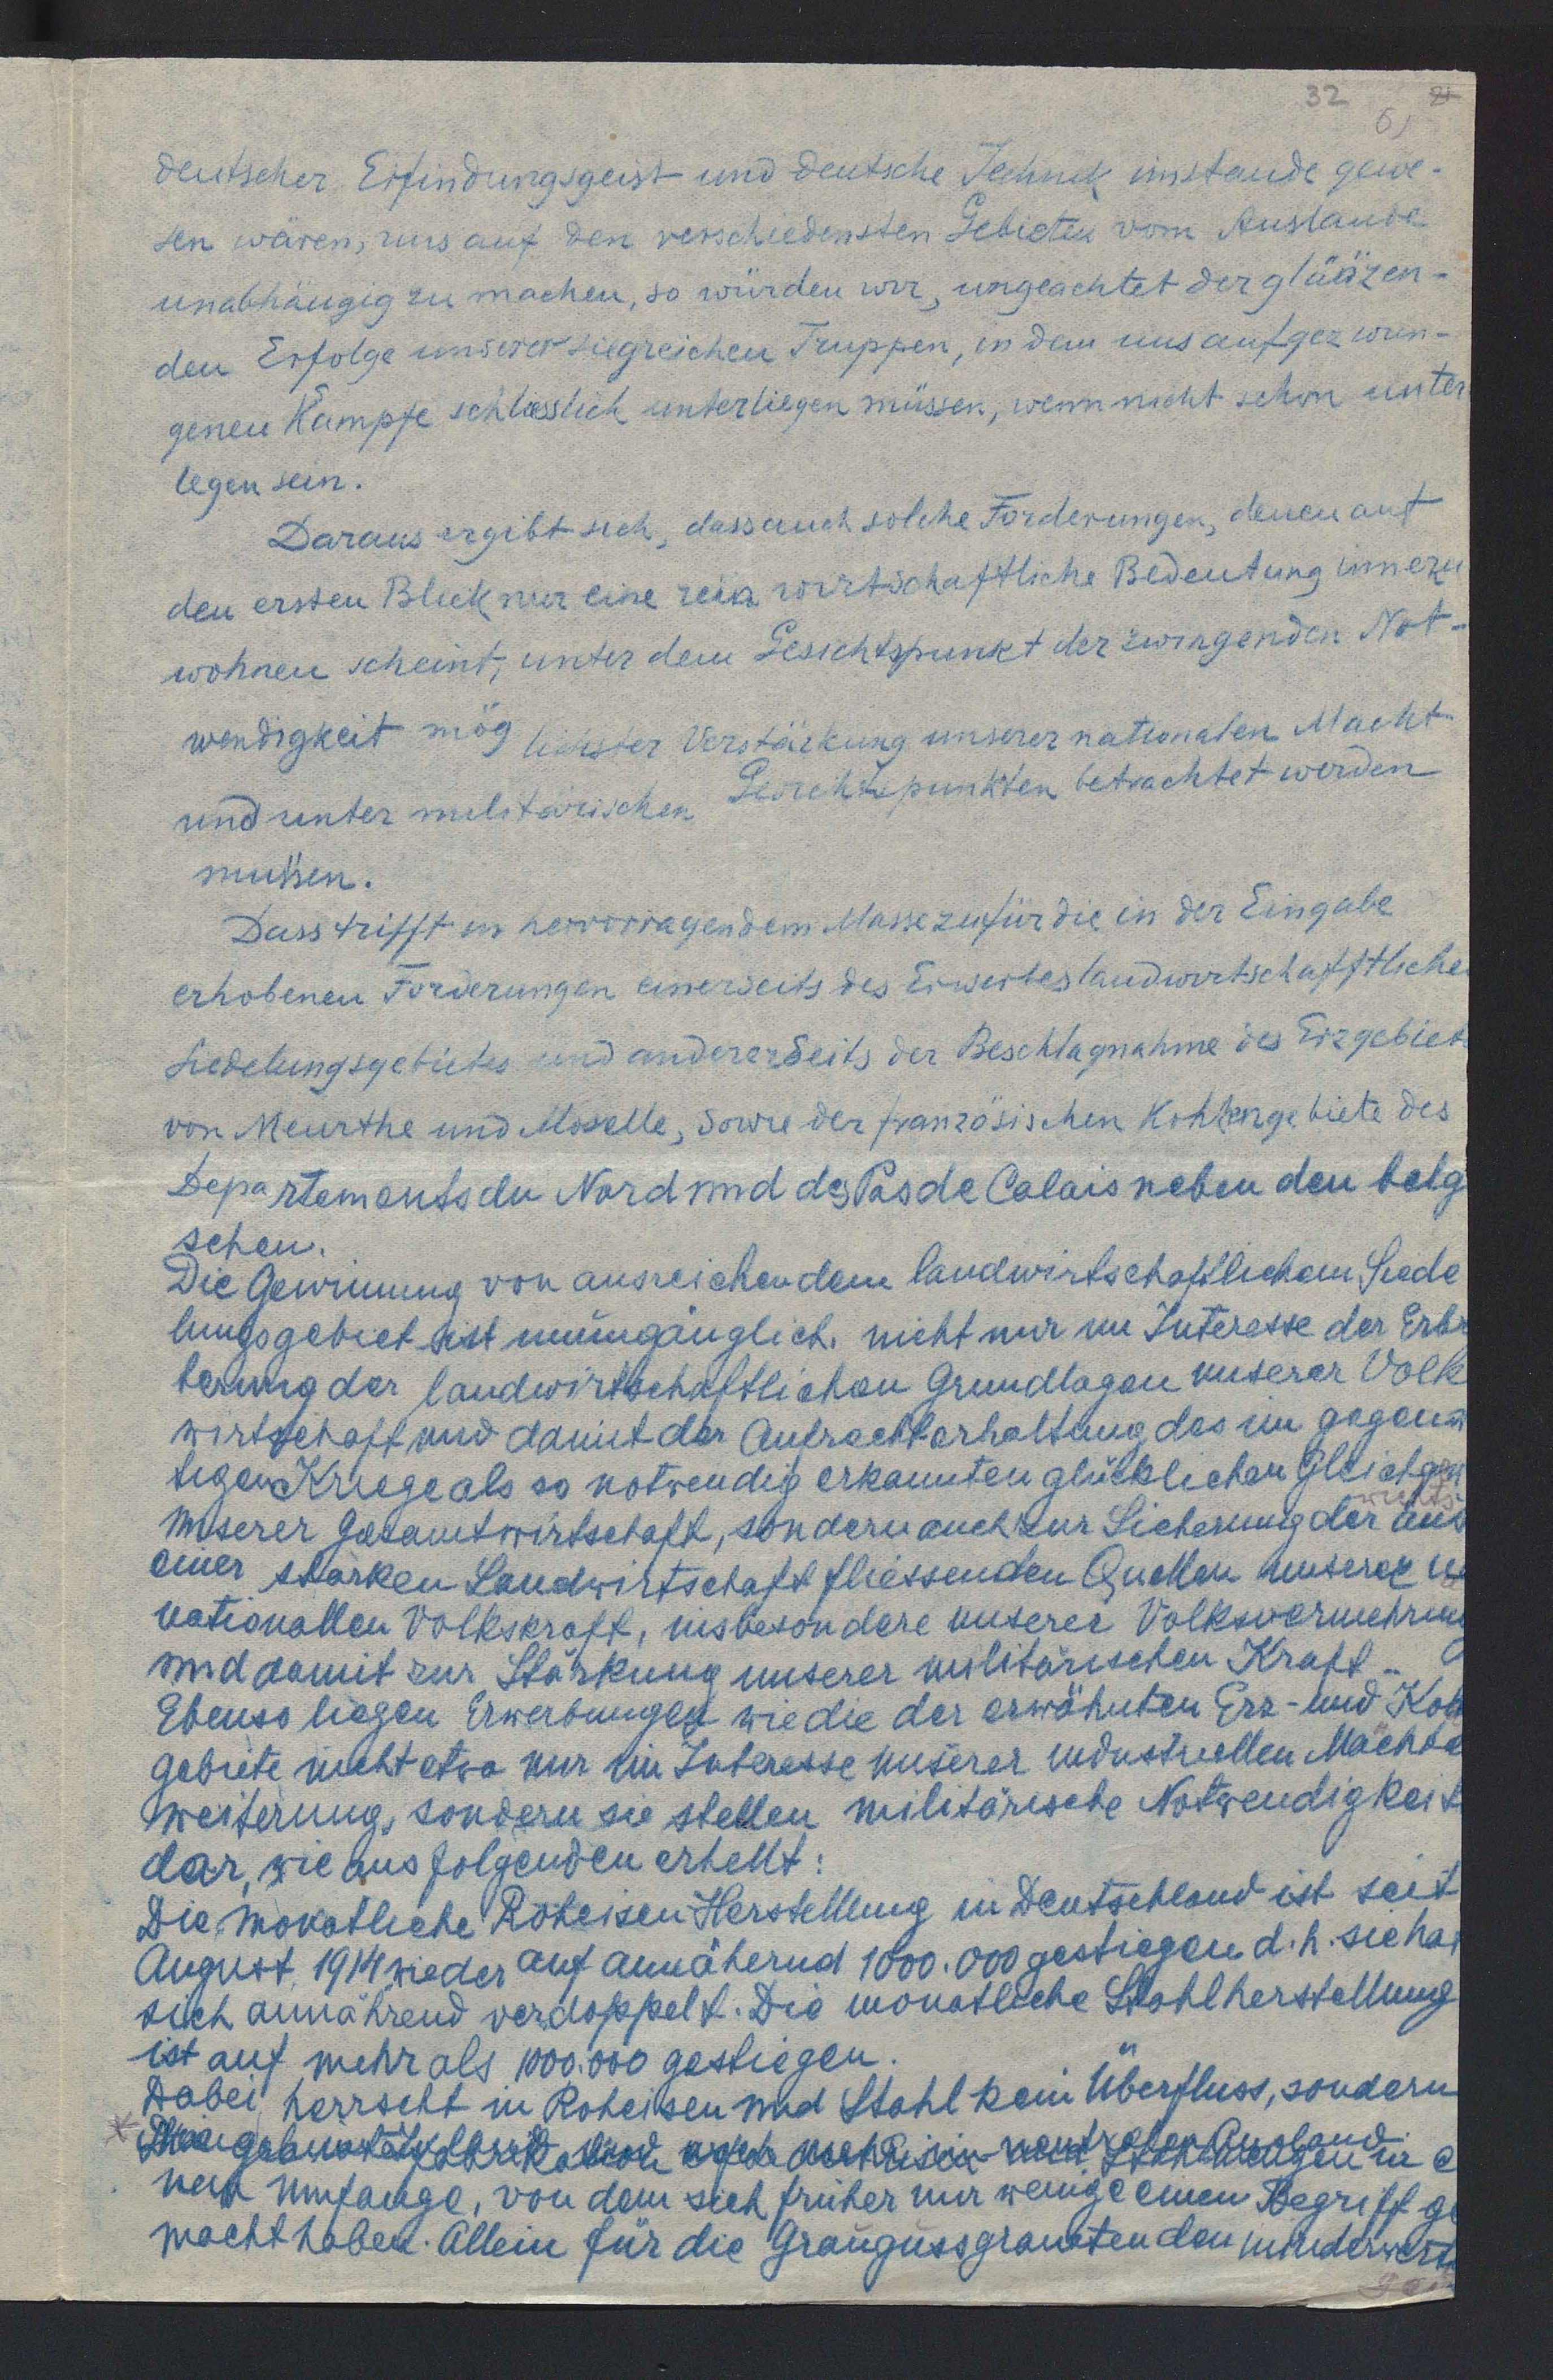 32
6)
deutscher Erfindungsgeist und deutsche Technik imstande gewe-
sen wären, uns auf den verschiedensten Gebieten vom Auslande
unabhängig zu machen, so würden wir, ungeachtet der gläazen-
den Erfolge unserer siegreichen Truppen, in dem uns aufgezwun-
genen Kampfe schliesslich unterliegen müssen, wenn nicht schon unter
legen sein.
Daraus ergibt sich, dass auch solche Forderungen, denen auf
den ersten Blick nur eine rein wirtschaftliche Bedeutung innezu
wohnen scheint, unter dem Gesichtspunkt der zwingenden Not-
wendigkeit mög lichster Verstärkung unserer nationalen Macht
und unter militärischen Gesichtspunkten betrachtet werden
müssen.
Dass trifft in hervorragendem Masse zu für die in der Eingabe
erhobenen Forderungen einerseits des Erwerbes landwirtschafftliche
Siedelungsgebietes und andererseits der Beschlagnahme des Erzgebiet
von Meurthe und Moselle, sowie der französischen Kohlengebiete des
Departements du Nord und des Pas de Calais neben den belg
schen.
Die Gewinnung von ausreichendem landwirtschaftlichem Siede
lungsgebiet ist unumgänglich. nicht nur im Interesse der Erbr
terung der landwirtschaftlichen Grundlagen unserer Volk
wirtschaft und damit der Aufrechterhaltung des im gegenw
tigen Kriege als so notwendig erkannten glücklichen Gleichge
wichts
unserer Gesamtwirtschaft, sondern auch zur Sicherung der aus
einer starken Landwirtschaft fliessenden Quellen unserer
nationallen Volkskraft, insbesondere unserer Volksvermehrung
und damit zur Stärkung unserer militärischen Kraft.
Ebenso liegen Erwerbungen wie die der erwähnten Erz- und Koh
gebiete nicht etwa nur im Interesse unserer industriellen Machte
weiterung, sondern sie stellen militärische Notwendigkeit
dar, wie aus folgenden erhellt:
Die monatliche Roheisen Herstellung in Deutschland ist seit
August 1914 wieder auf annähernd 1000.000 gestiegen d.h. sie hat
sich annährend verdoppelt. Die monatliche Stahlherstellung
ist auf mehr als 1000.000 gestiegen.
Dabei herrscht in Roheisen und Stahl kein Überfluss, sondern
neutralen Ausland
nen Umfange, von dem sich früher nur wenige einen Begriff ge
macht haben. Allein für die Graugussgranaten den minderwert